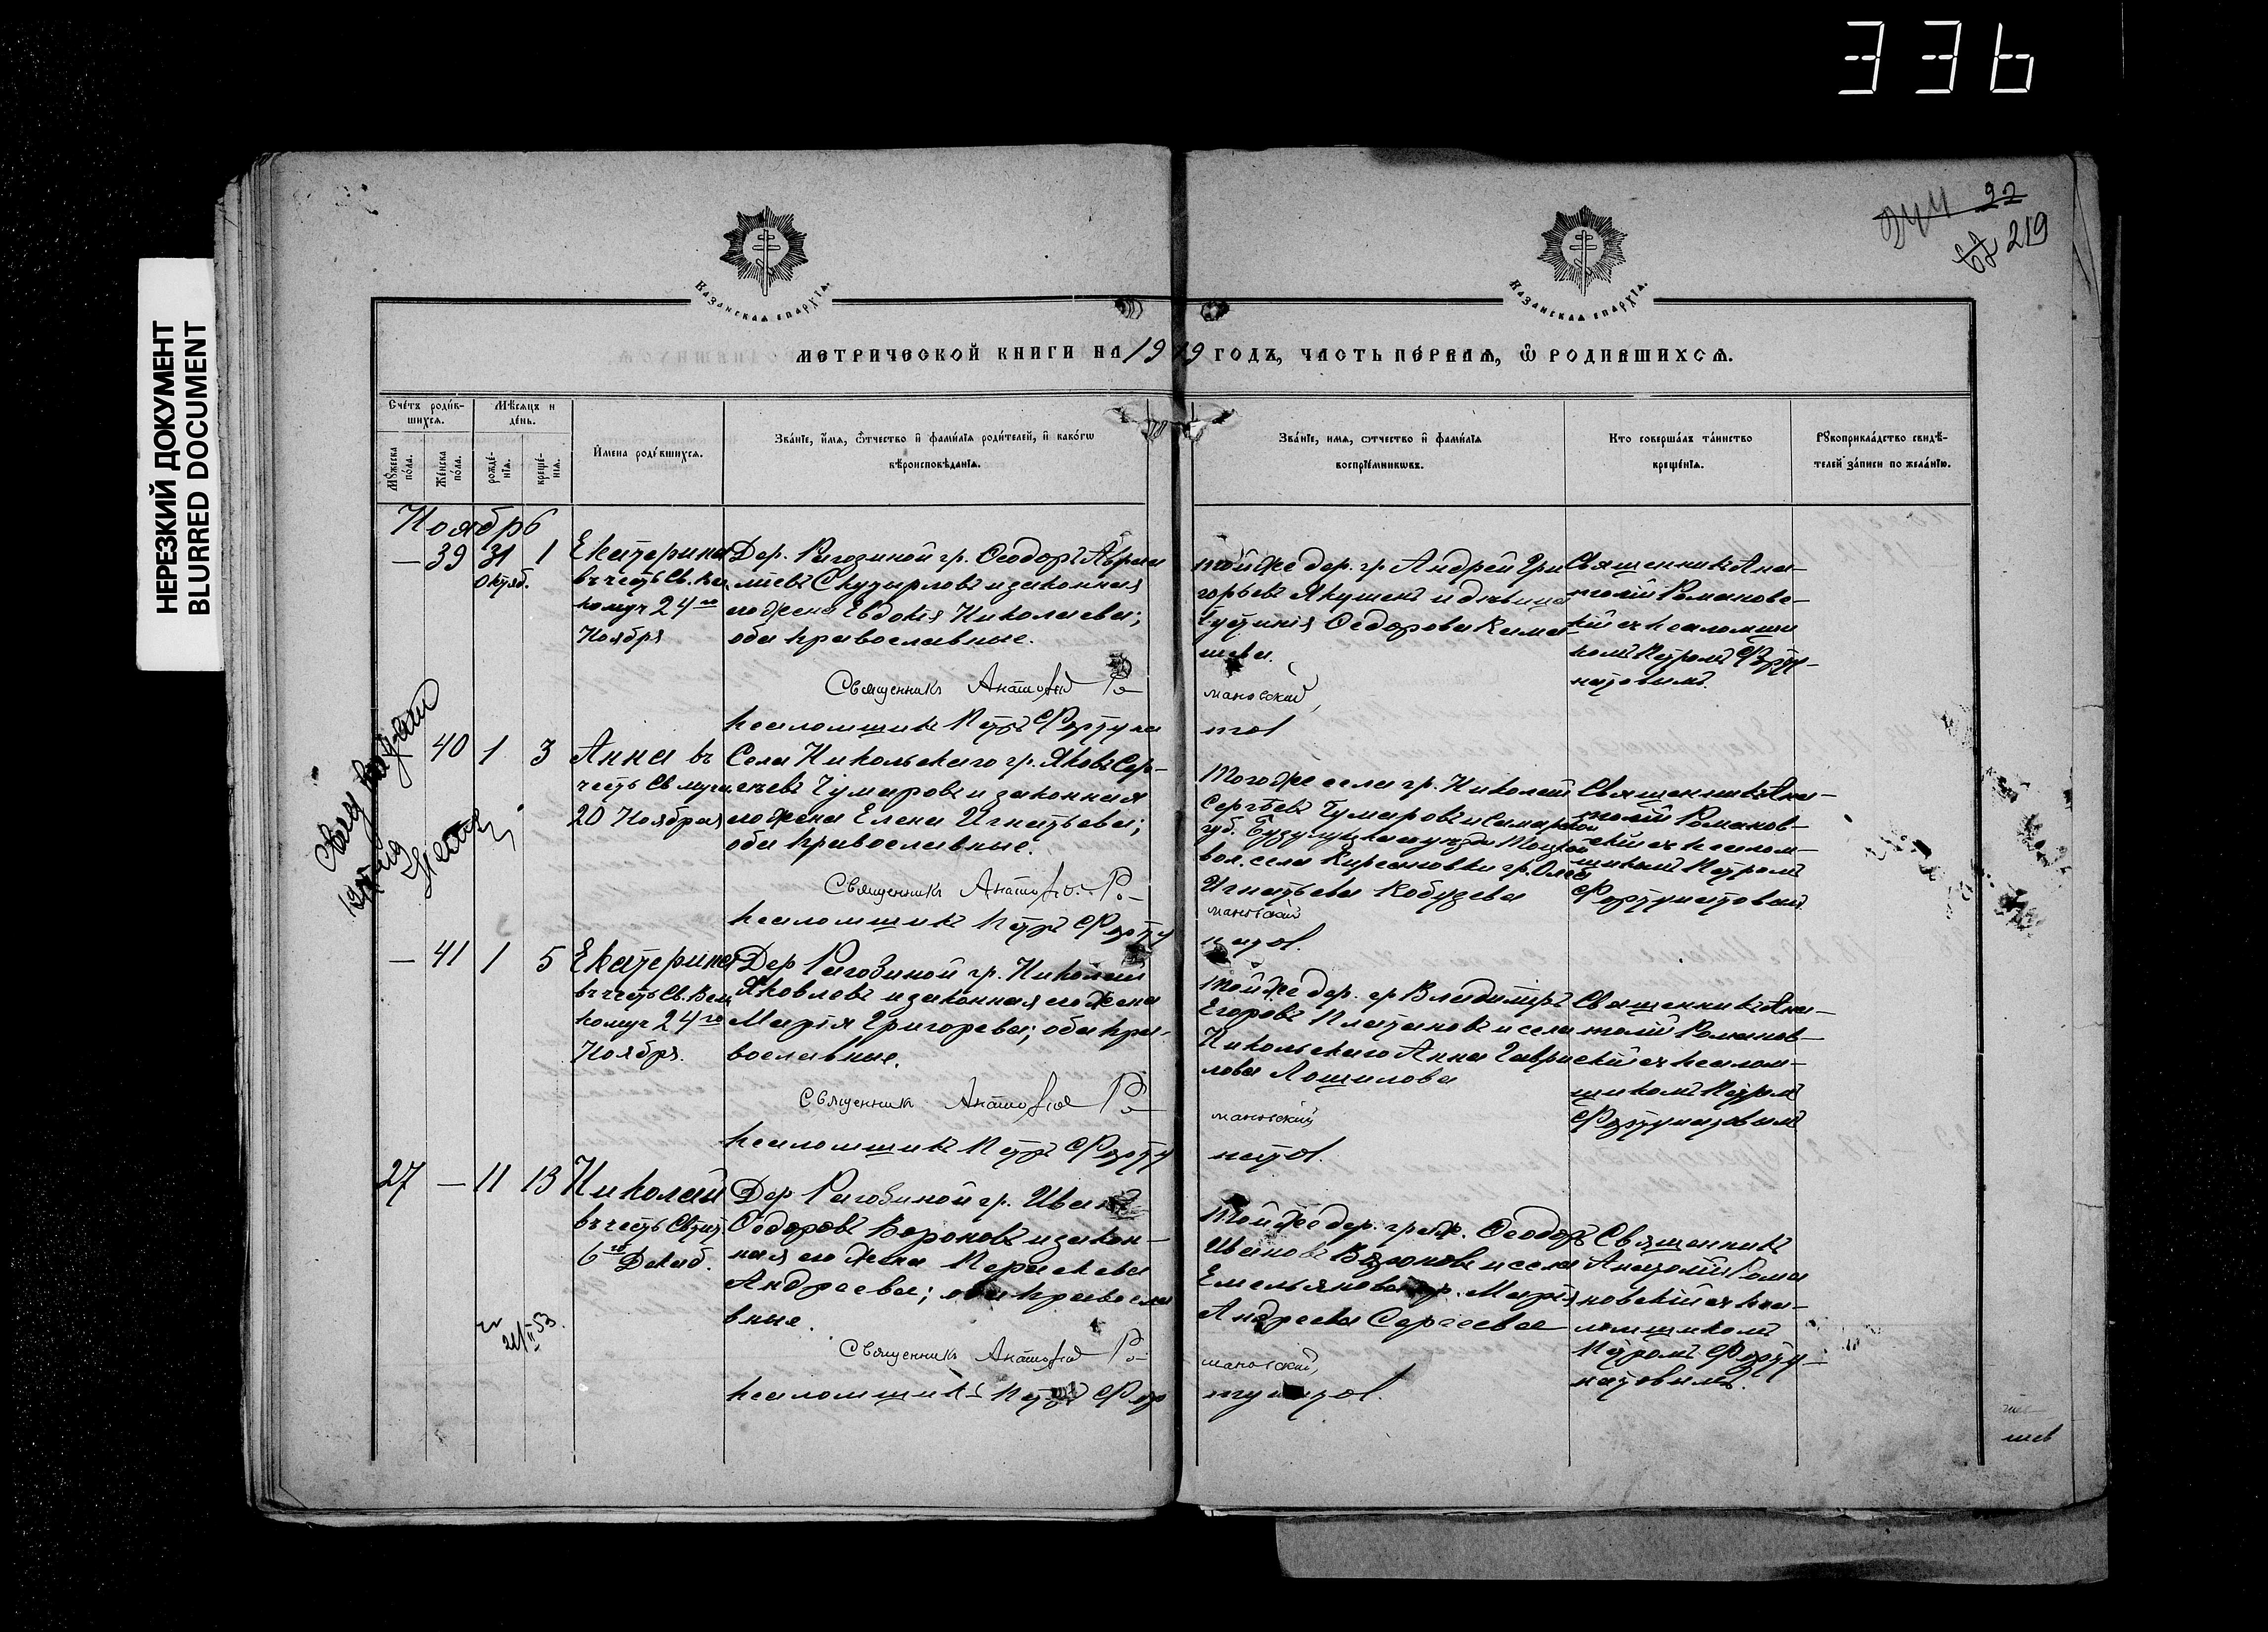 336
НЕРЕЗКИЙ ДОКУМЕНТ
BLURRED DOCUMENT
92
219
Казанская епархїѧ.
Казанская епархїѧ.
МЕТРИЧЕСКОЙ КНИГИ НА 1919 ГОДЪ, ЧАСТЬ ПЕРВАЯ, Ѡ РОДИВШИХСЯ.
Счетъ родившихся.
Мѣсяцъ и день.
Мужеска пола.
Женска пола.
рожденія.
крещенія.
Имена родившихся.
Званіе, имя, отчество и фамилія родителей, и какогѡ вѣроисповѣданія.
Званіе, имя, отчество и фамилія воспріемниковъ.
Кто совершалъ таинство крещенія.
Рукоприкладство свидѣтелей записи по желанію.
Ноябрь
— 39 31 1
Октяб.
Екатерина
въ честь Св. Вел
комуч 24го
Ноября
Дер. Рагозиной гр. Ѳеодоръ
и законная
его жена Евдокія Николаева;
оба православные.
Священникъ Анатолій Ро-
мановскій,
псаломщикъ Петръ Фортуна
тов
той же дер. гр. Андрей Гри
горьевъ и дѣвица
Ѳедорова
Священникъ Ана-
толій Романовс-
кій съ псаломщи
комъ Петромъ Форту-
натовымъ.
40 1 3
Анна въ
честь Св муч
20 Ноября
Села Никольскаго гр. Яковъ Сер-
гѣевъ Чумаровъ и законная
его жена Елена Игнатьева;
оба православные.
Священникъ Анатолій Ро-
мановскій
псаломщикъ Петръ Форту
натов.
Того же села гр. Николай
Сергѣевъ Чумаровъ и Самарской
губ. Бузулукскаго уѣзда
вол. села гр.
Игнатьева Кобузева
Священникъ Ана-
толій Романов-
скій съ псалом-
щикомъ Петромъ
Фортунатовым
— 41 1 5
Екатерина
въ честь Св. Вели
комуч 24го
Ноября.
Дер Рагозиной гр. Николай
Яковлевъ и законная его жена
Марія Григорьева; оба пра-
вославные.
Священникъ Анатолій Ро-
мановскій
псаломщикъ Петръ Форту
натов.
той же дер. гр Владиміръ
Егоровъ Платановъ и села
Никольскаго Анна Гаври
лова Лошилова
Священникъ Ана-
толій Романов-
скій съ псалом-
щикомъ Петромъ
Фортунатовымъ
27 — 11 13
Николай
въ честь Свтит
6го Декаб.
Дер Рагозиной гр. Иванъ
Ѳеодоровъ Вороновъ и закон-
ная его жена Параскева
Андреева; оба правосла
вные.
Священникъ Анатолій Ро-
мановскій,
псаломщикъ Петръ Фор
тунатов.
той же дер. граж. Ѳеодоръ
Ивановъ Вороновъ и села
Емельянова гр. Марія
Андреева Сергеева
Священникъ
Анатолій Рома
новскій съ пса-
ломщикомъ
Петромъ Форту-
натовымъ.